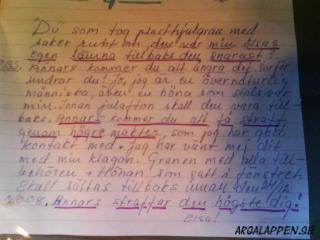 "Du som tog plasthjulgran med
saker runt om, den var min Elsas
egen lämna tillbaks den snarast!
Annars kommer du att ångra dej. Varför
undrar du? jo, jag är en övernaturlig
människa, även en höna som stals var
min. Innan julafton skall den vara till-
baks. Annars kommer du att få straff
genom högre makter, som jag har god
kontakt med. Jag har vänt mej dit
med min klagan. Granen med alla till-
behören + Hönan som satt i fönstret
Skall sättas tillbaks innan den 24/12
2008. Annars straffar den högste dig!
Elsa!
ARGALAPPEN.SE